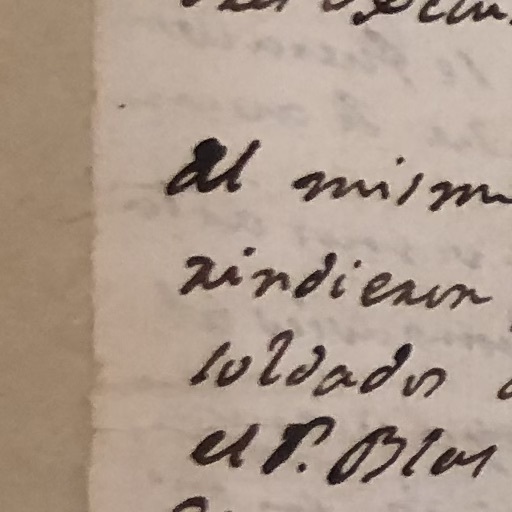 Al mism
rindieron
soldados
el P. Blas